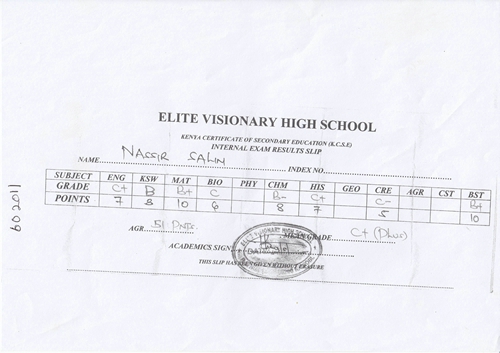 ELITE VISIONARY HIGH SCHOOL
KENYA CERTIFICATE OF SECONDARY EDUCATION (K.C.S.E)
INTERNAL EXAM RESULTS SLIP
NAME NASSIR SALIM INDEX NO.
SUBJECT ENG KSW MAT BIO PHY CHM HIS GEO CRE AGR CST BST
GRADE C+ B B+ C B- C+ C- B+
POINTS 7 8 10 6 8 7 5 10
AGR 51 Pnts. MEAN GRADE C+ (Plus)
ACADEMICS SIGN
THIS SLIP HAS BEEN GIVEN WITHOUT ERASURE
ELITE VISIONARY HIGH SCHOOL
602011